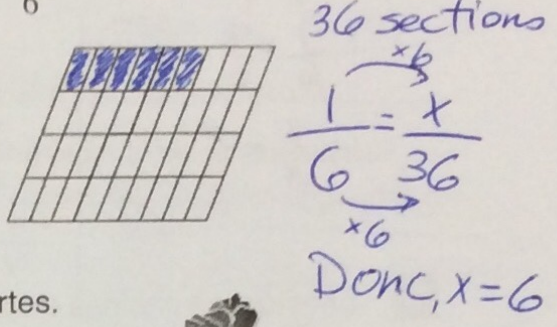 36 sections
×6
1/6 = x/36
×6
Donc, x=6
rtes.